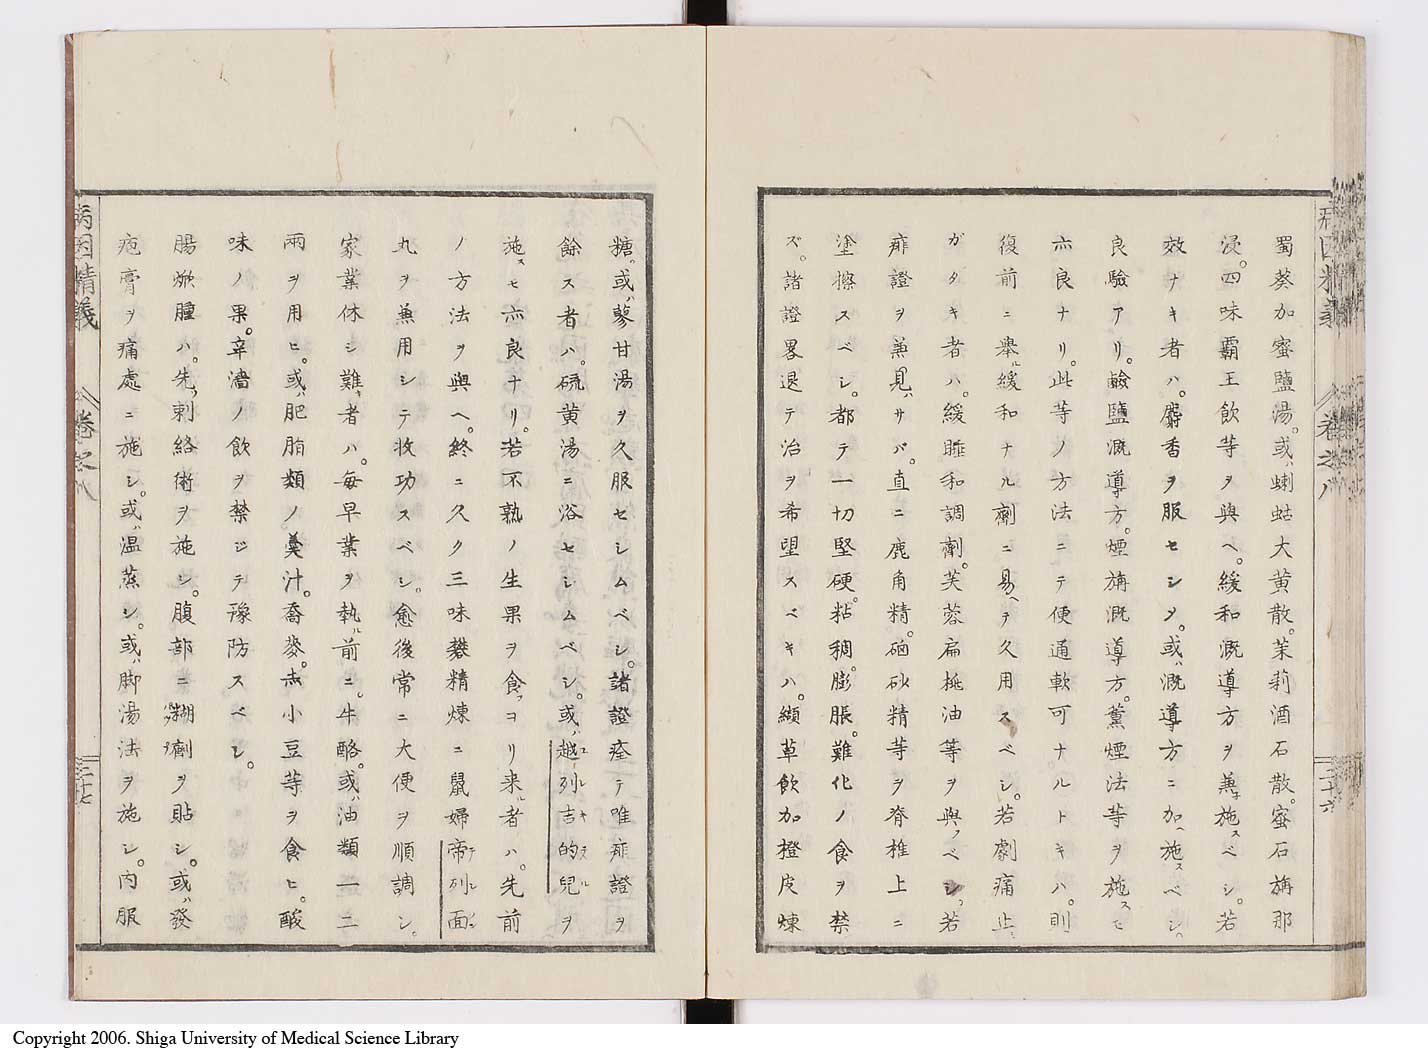 蜀葵加蜜鹽湯。或ハ蝲蛄大黄散。茉莉酒石散。蜜石旃那
浸。四味霸王飲等ヲ與ヘ。緩和漑導方ヲ兼子施スベシ。若
效ナキ者ハ。麝香ヲ服セシメ。或ハ漑導方ニ加ヘ施スベシ。
良驗アリ。鹼鹽漑導方。煙旃漑導方。薫煙法等ヲ施スモ
亦良ナリ。此等ノ方法ニテ便通軟可ナルトキハ。則
復前ニ舉ル緩和ナル劑ニ易ヘテ久用スベシ。若劇痛止ミ
ガタキ者ハ。緩睡和調劑。芙蓉扁桃油等ヲ與フベシ。若
痱證ヲ兼見ハサバ。直ニ鹿角精。硇砂精等ヲ脊椎上ニ
塗擦スベシ。都テ一切堅硬。粘稠。膨脹。難化ノ食ヲ禁
ズ。諸證畧退テ治ヲ希望スベキハ。纈草飲加橙皮煉
糖。或ハ蓼甘湯ヲ久服セシムベシ。諸證痊テ唯痱證ヲ
餘ス者ハ。硫黄湯ニ浴セシムベシ。或ハ越列吉的兒ヲ
施スモ亦良ナリ。若不熟ノ生果ヲ食フヨリ来ル者ハ。先前
ノ方法ヲ與ヘ。終ニ久ク三味礬精煉ニ鼠婦帝列面
丸ヲ兼用シテ收功スベシ。愈後常ニ大便ヲ順調シ。
家業休シ難キ者ハ。毎早業ヲ執ル前ニ。牛酪。或ハ油類一二
兩ヲ用ヒ。或ハ肥脂類ノ羹汁。喬麥。赤小豆等ヲ食ヒ。酸
味ノ果。辛濇ノ飲ヲ禁ジテ豫防スベシ。
腸焮腫ハ。先ツ刺絡術ヲ施シ。腹部ニ糊劑ヲ貼シ。或ハ發
疱膏ヲ痛處ニ施シ。或ハ温蒸シ。或ハ脚湯法ヲ施シ。内服
病因精義 卷之八 二十六
病因精義 卷之八 二十七
Copyright 2006. Shiga University of Medical Science Library